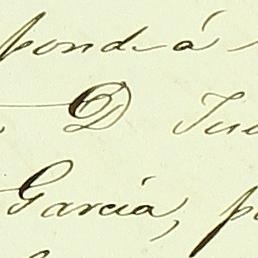 pondrá
D
García, p